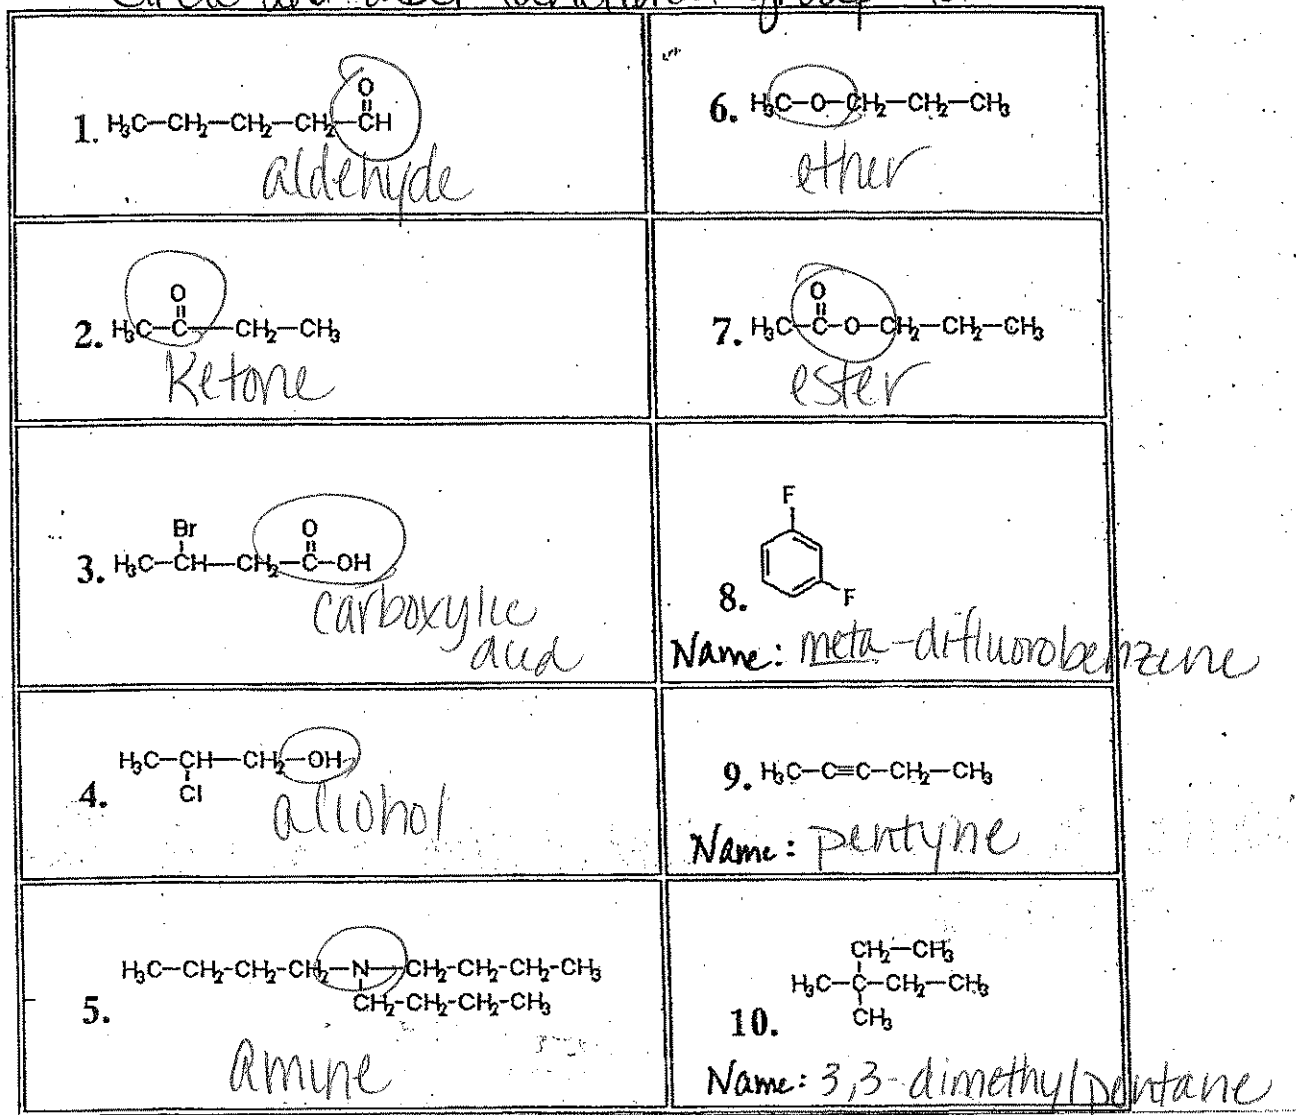 Circle and label functional group
1. H₃C-CH₂-CH₂-CH₂-CH
O
aldehyde
2. H₃C-C-CH₂-CH₃
O
Ketone
3. H₃C-CH-CH₂-C-OH
Br O
carboxylic
acid
4. H₃C-CH-CH₂-OH
Cl
alcohol
5. H₃C-CH₂-CH₂-CH₂-N-CH₂-CH₂-CH₂-CH₃
CH₂-CH₂-CH₂-CH₃
amine
6. H₃C-O-CH₂-CH₂-CH₃
ether
7. H₃C-C-O-CH₂-CH₂-CH₃
O
ester
F
F
8.
Name: meta-difluorobenzene
9. H₃C-C≡C-CH₂-CH₃
Name: pentyne
CH₂-CH₃
H₃C-C-CH₂-CH₃
CH₃
10.
Name: 3,3-dimethylpentane